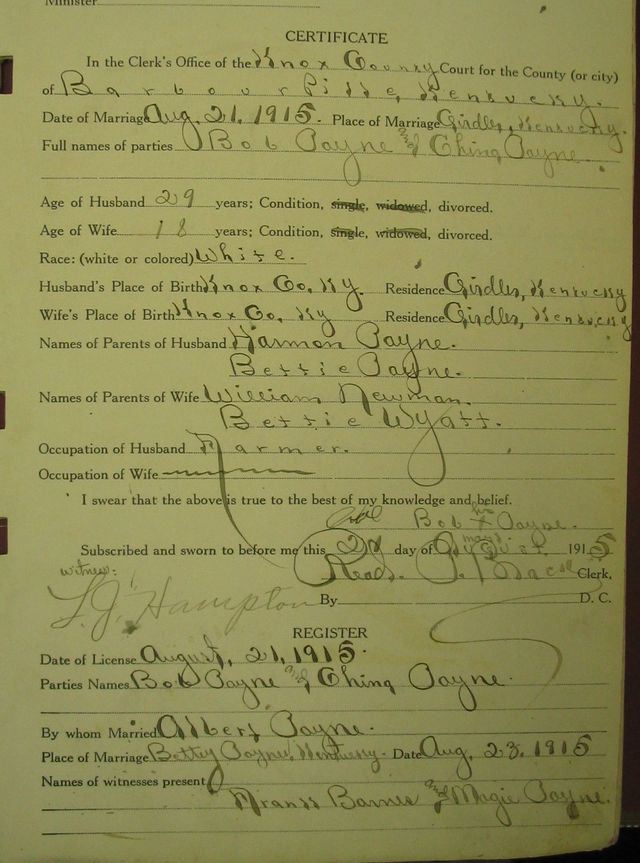 Minister
CERTIFICATE
In the Clerk's Office of the Knox County Court for the County (or city)
of Barbourville, Kentucky.
Date of Marriage Aug. 21, 1915. Place of Marriage Girdler, Kentucky.
Full names of parties Bob Payne and Ching Payne
Age of Husband 29 years; Condition, single, widowed, divorced.
Age of Wife 18 years; Condition, single, widowed, divorced.
Race: (white or colored) White.
Husband's Place of Birth Knox Co, Ky. Residence Girdler, Kentucky
Wife's Place of Birth Knox Co, Ky Residence Girdler, Kentucky
Names of Parents of Husband Harmon Payne.
Bettie Payne.
Names of Parents of Wife William Newman.
Bettie Wyatt.
Occupation of Husband Farmer.
Occupation of Wife
I swear that the above is true to the best of my knowledge and belief.
Bob his X Payne.
mark
Subscribed and sworn to before me this day of August. 1915
witness: Read P. Black Clerk.
L.J. Hampton By D. C.
REGISTER
Date of License August, 21, 1915.
Parties Names Bob Payne and Ching Payne.
By whom Married Albert Payne.
Place of Marriage Betty Payne, Kentucky. Date Aug, 23, 1915
Names of witnesses present
Barnes and Magie Payne.